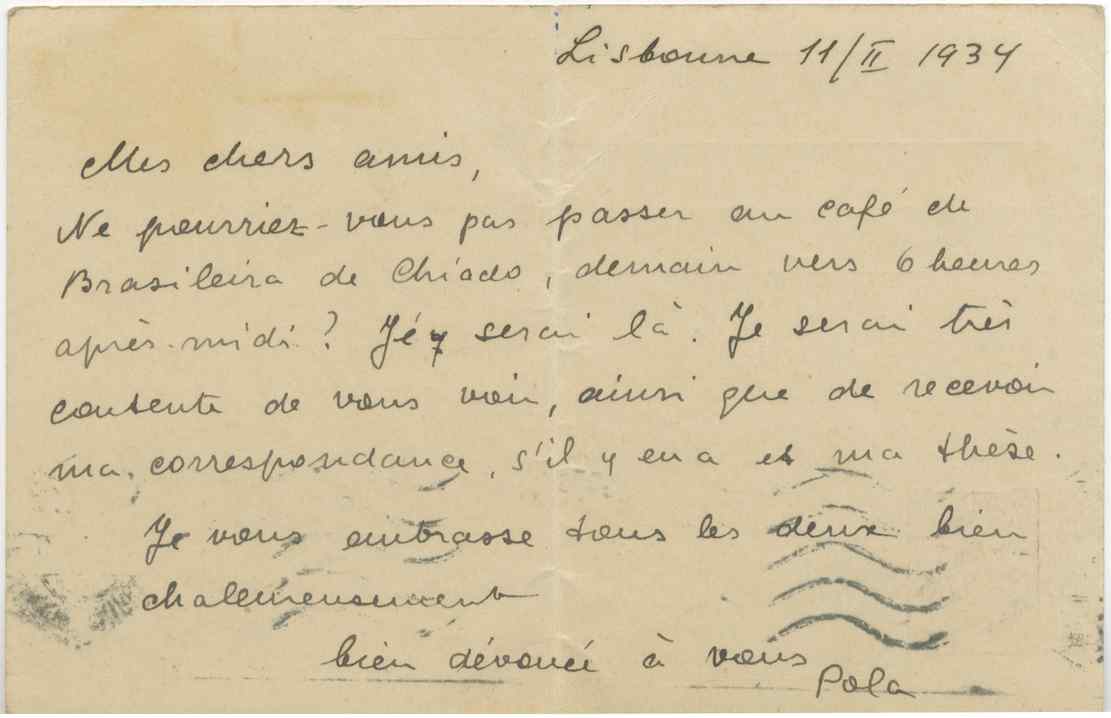 Lisbonne 11/II 1934
Mes chers amis,
Ne pourriez-vous pas passer au café de
Brasileira de Chiado, demain vers 6 heures
après-midi? J'éy serai là. Je serai très
contente de vous voir, ainsi que de recevoir
ma correspondance, s'il y en a et ma thèse.
Je vous embrasse tous les deux bien
chaleureusement
bien dévouée à vous
Pola